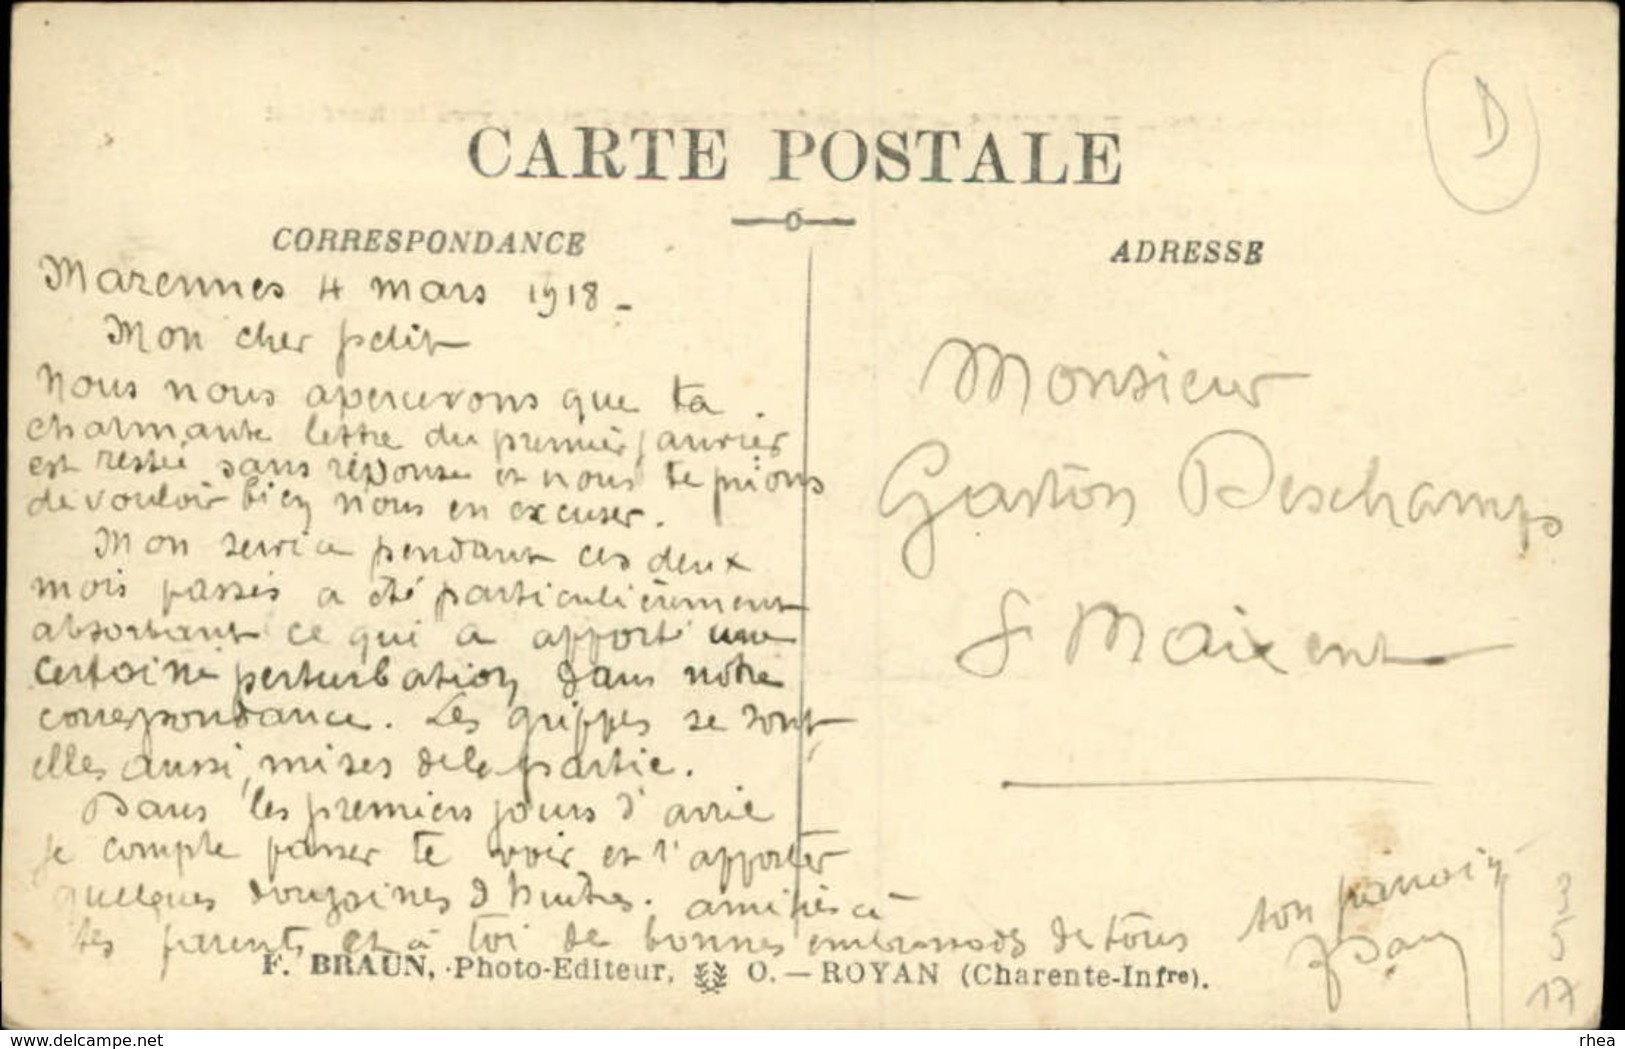 D
CARTE POSTALE
CORRESPONDANCE
ADRESSE
Marennes 4 mars 1918 -
Mon cher petit
Nous nous apercevons que ta
charmante lettre du premier janvier
est restée sans réponse et nous te prions
de vouloir bien nous en excuser.
Mon service pendant ces deux
mois passés a été particulièrement
absorbant ce qui a apporté une
certaine perturbation dans notre
correspondance. Les grippes se sont
elles aussi, mises de la partie.
Dans les premiers jours d'avril
je compte passer te voir et t'apporter
quelques douzaines d'huitres. amitiés à
tes parents et à toi de bonnes embrassades de tous
Monsieur
Gaston Deschamps
St Maixent
ton parrain
F. BRAUN, Photo-Editeur, O. — ROYAN (Charente-Infre).
17
delcampe.net
rhea